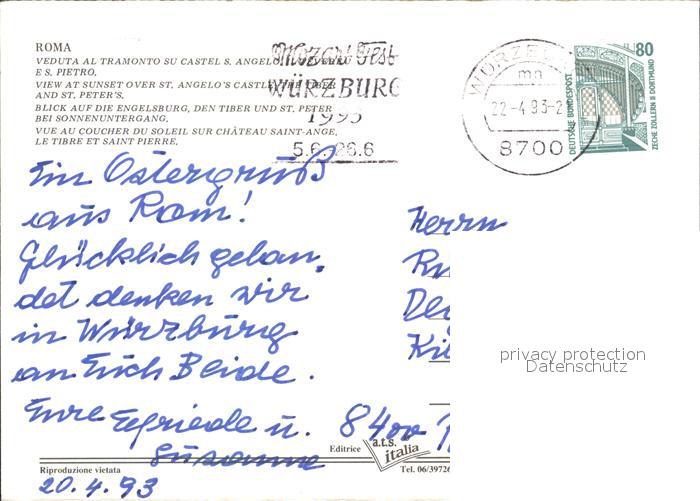 ROMA
VEDUTA AL TRAMONTO SU CASTEL S. ANGELO TEVERE
E S. PIETRO.
VIEW AT SUNSET OVER ST. ANGELO'S CASTLE, THE TIBER
AND ST. PETER'S.
BLICK AUF DIE ENGELSBURG, DEN TIBER UND ST. PETER
BEI SONNENUNTERGANG.
VUE AU COUCHER DU SOLEIL SUR CHÂTEAU SAINT-ANGE,
LE TIBRE ET SAINT PIERRE.
Mozart Fest
WÜRZBURG
1993
5.6. 26.6
WÜRZBURG
mn
22-4.93-2
8700
80
DEUTSCHE BUNDESPOST
ZECHE ZOLLERN II DORTMUND
Ein Ostergruß
aus Rom!
Glücklich gelan,
det denken wir
in Würzburg
an Euch Beide.
Eure Elfriede u.
Susanne
20.4.93
Herrn
Ru
De
Ki
8400
privacy protection
Datenschutz
Riproduzione vietata
Editrice
a.t.s.
italia
Tel. 06/39726